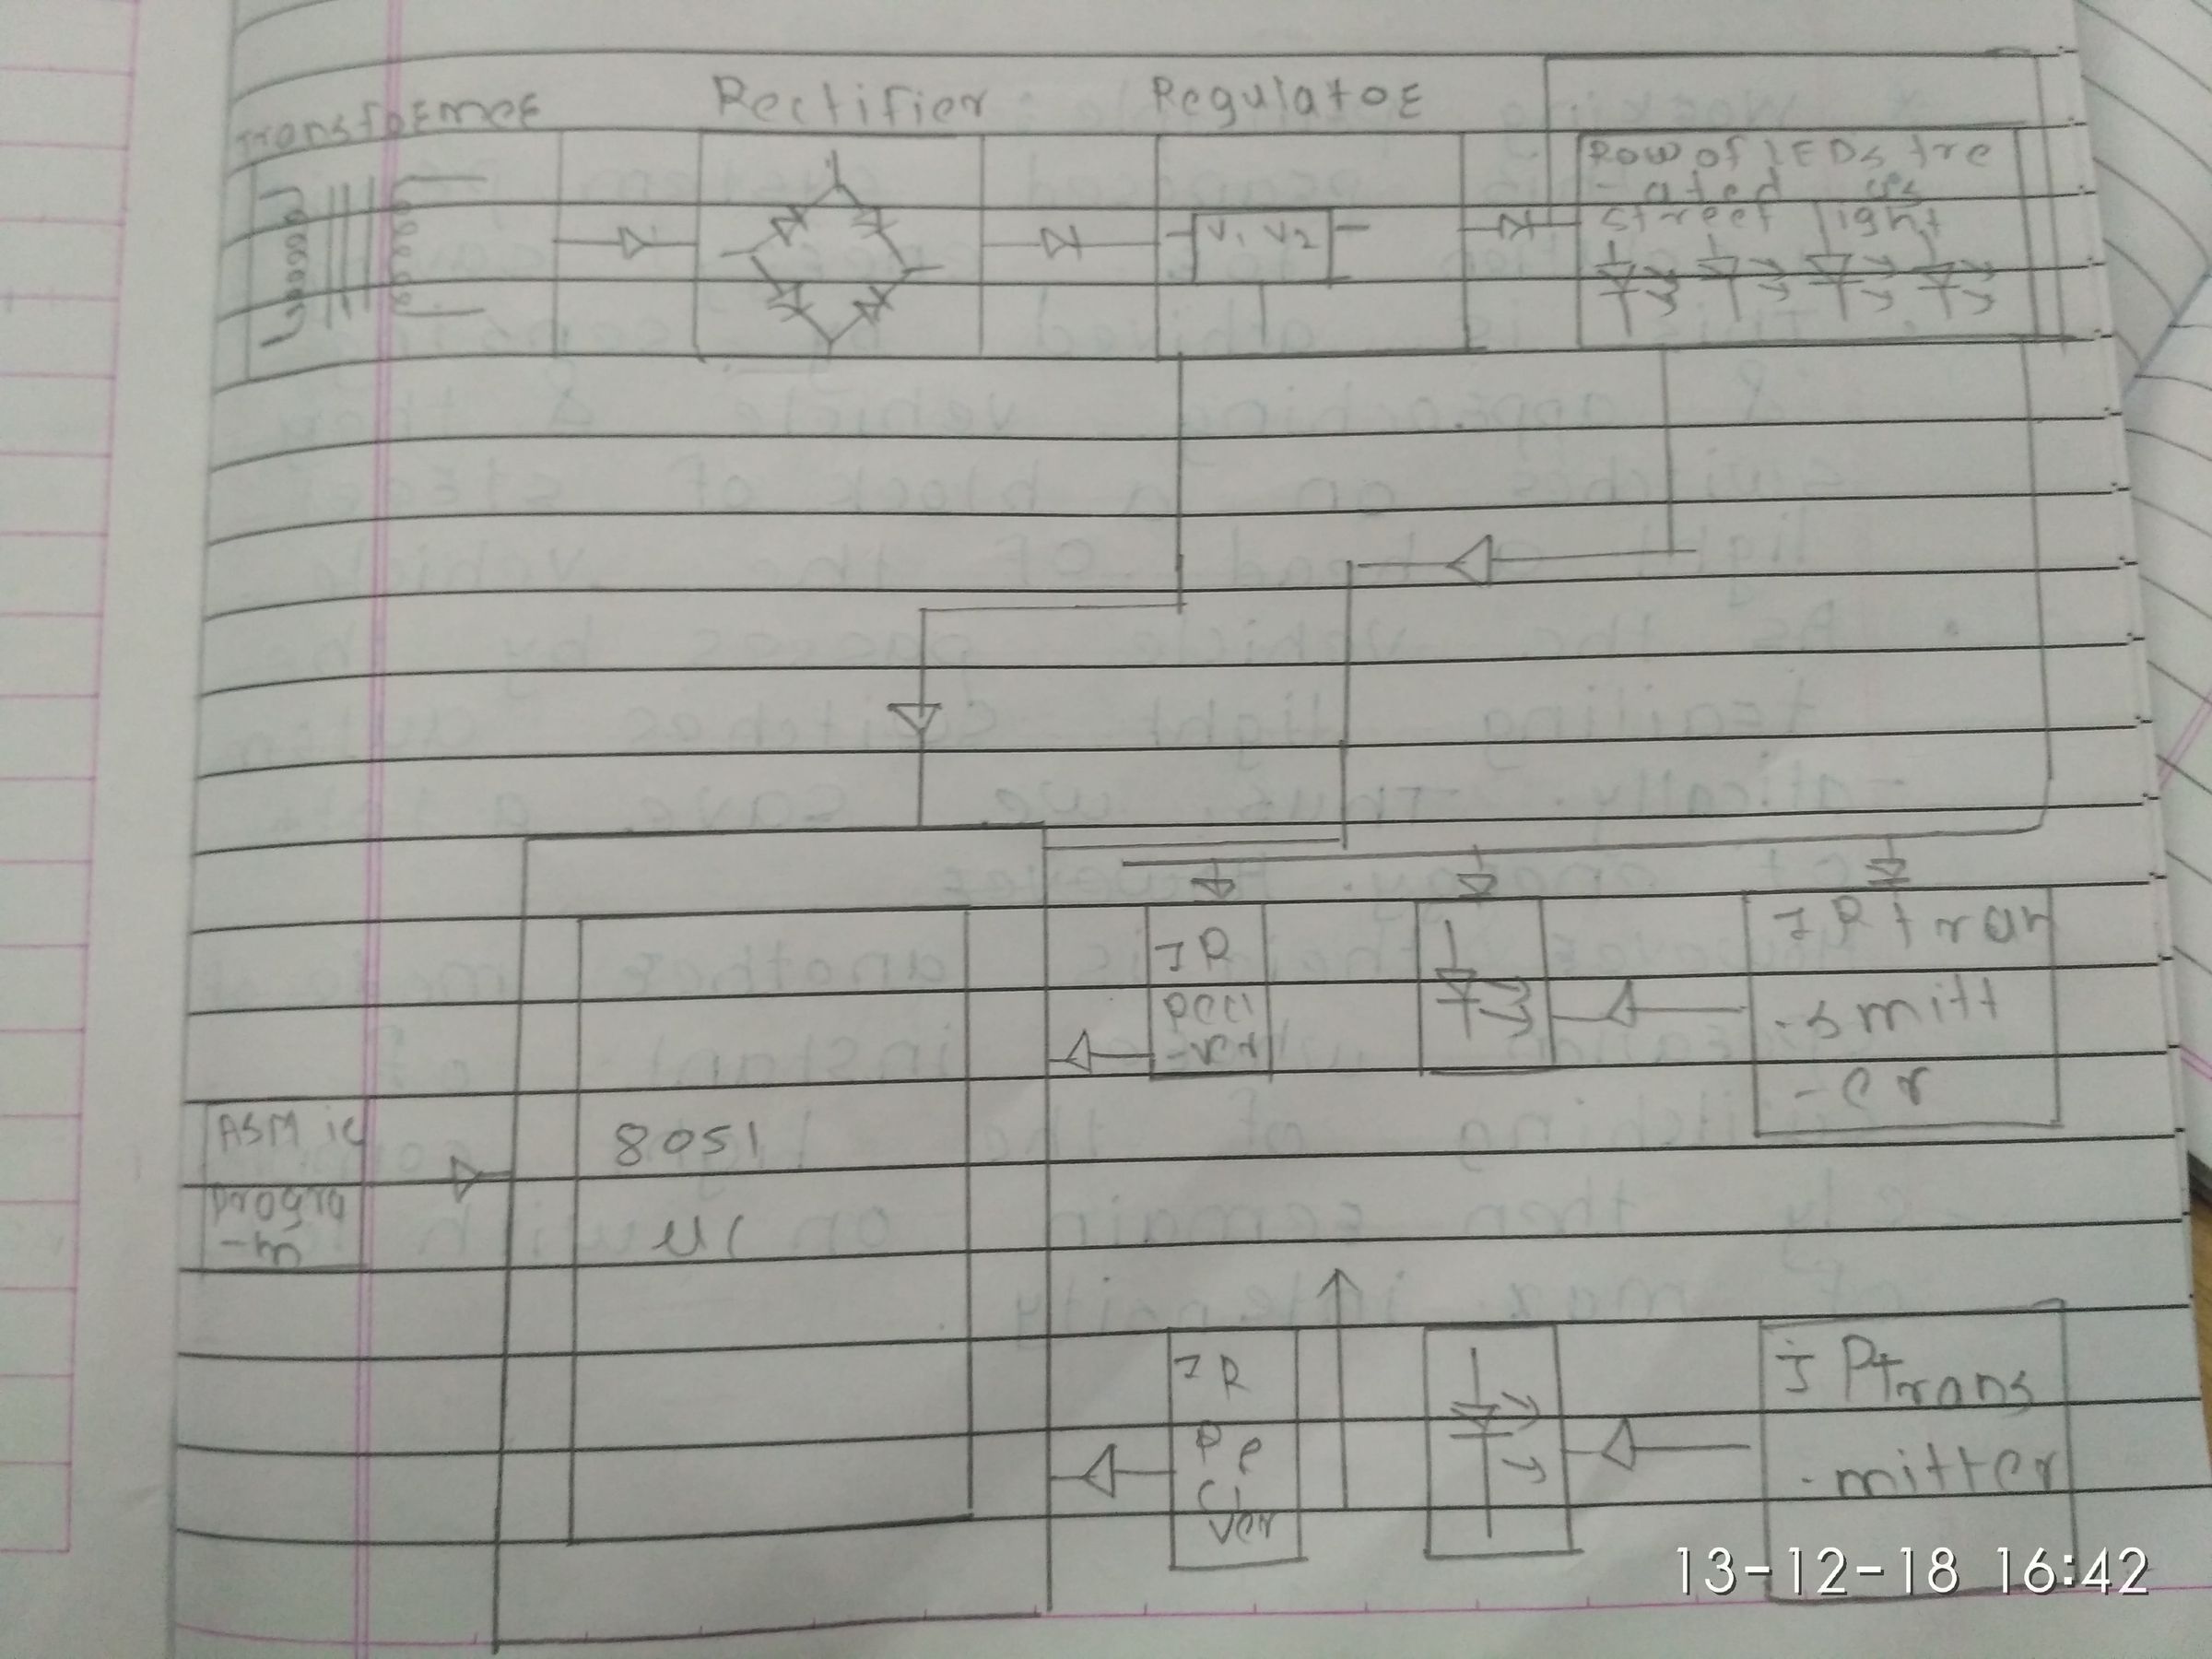 Transformer
Rectifier
Regulator
V1 V2
Row of LEDs tre
-ated as
street light
IR
-ver
IR tran
-smitt
-er
ASM ic
progra
-m
8051
uc
IR
Re
ci
ver
IRtrans
-mitter
13-12-18 16:42